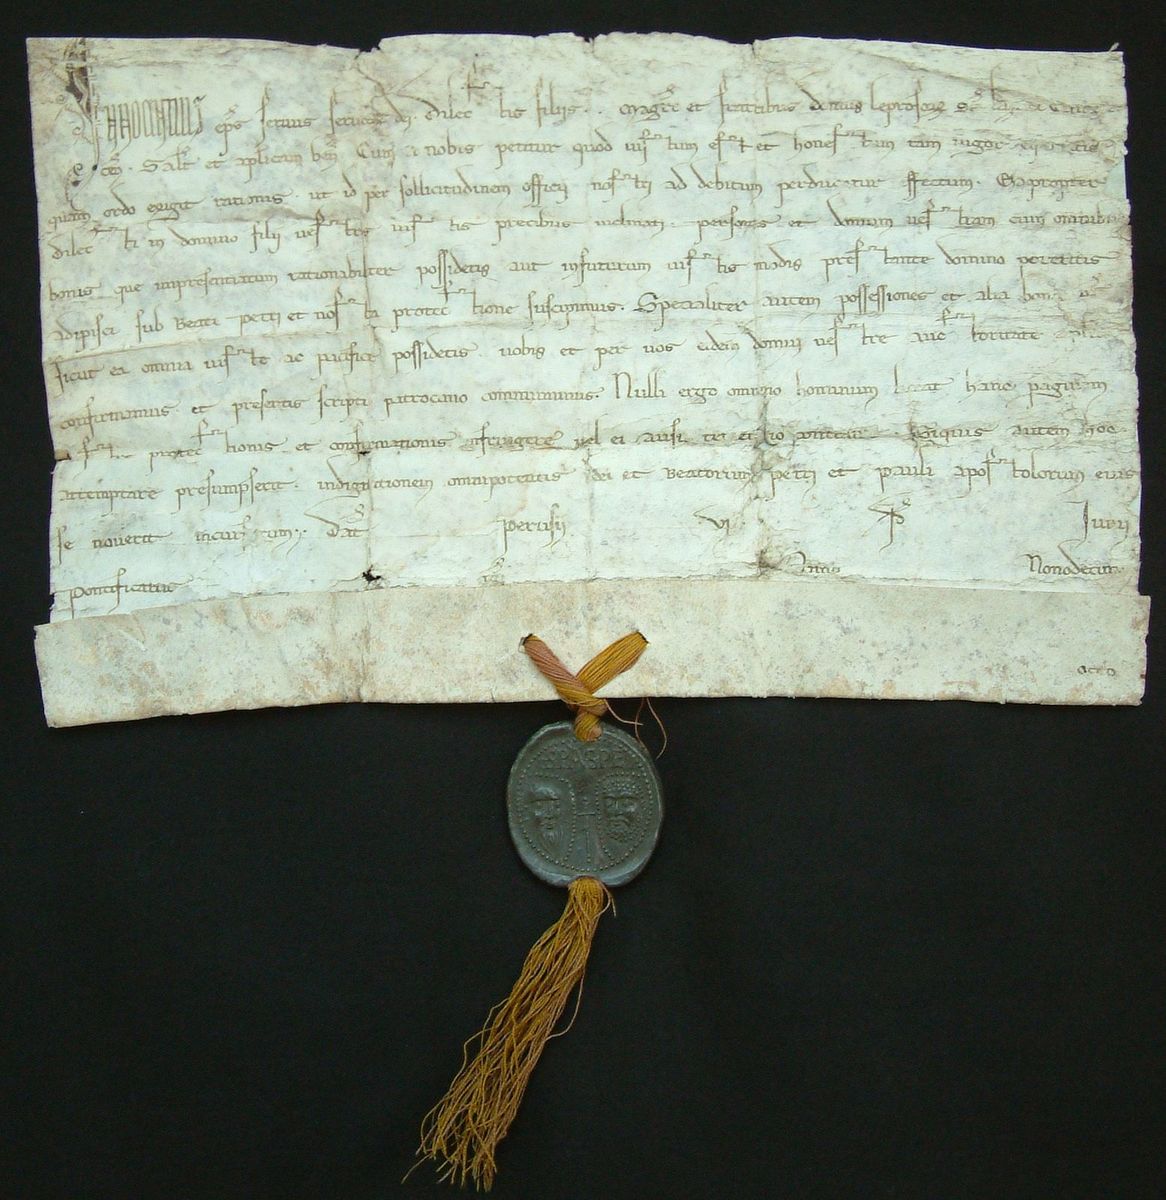 INNOCENTIUS ep̄s servus servoꝝ dī. Dilectis filiis. Mag̃ro et fratribus domus leprosoꝝ
Saɫt et ap̄licam beñ. Cum a nobis petitur quod iustum est et honestum tam vigor equitatis
quam ordo exigit rationis ut id per sollicitudinem officii nostri ad debitum perducatur effectum. Eapropter
dilecti in domino filii vestris iustis precibus inclinati. personas et domum vestram cum omnibus
bonis que inpresentiarum rationabiliter possidetis aut infuturum iustis modis prestante domino poteritis
adipisci sub beati petri et nostra protectione suscipimus. Specialiter autem possessiones et alia bona ṽra
sicut ea omnia iuste ac pacifice possidetis. vobis et per vos eidem domui vestre auctoritate
confirmamus. et presentis scripti patrocinio communimus. Nulli ergo omnino hominum liceat hanc paginam
nostre protectionis et confirmationis infringere vel ei ausu temerario contraire. Siquis autem hoc
attemptare presumpserit. indignationem omnipotentis dei et beatorum petri et pauli apostolorum eius
se noverit incursurum. Dat̃ perusii vi Iunii
Pontificatus Anno Nonodecim.
SPA SPE